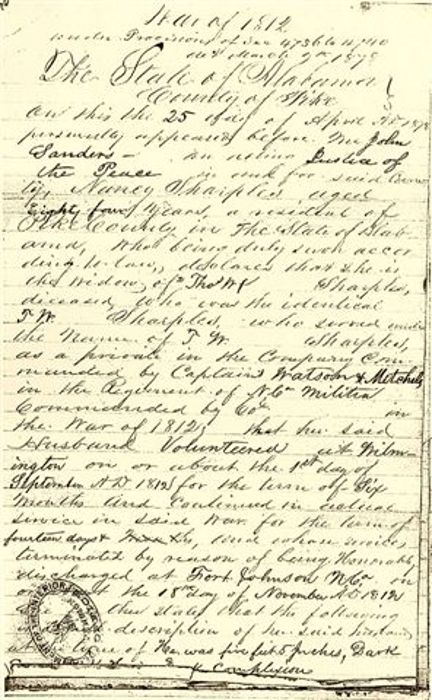 War of 1812
under Provisions of Sec 4736 to 4740
Act March 9th 1878
The State of Alabama
County of Pike
On this the 25 day of April AD 1878
personally appeared before me John
Sanders - an acting Justice of
the Peace in and for said Coun
ty, Nancy Sharples, aged
Eighty four years, a resident of
Pike County in the State of Alab
ama, who being duly sworn accor
ding to law, declares that she is
the widow of Thos W Sharples,
deceased who was the identical
T. W. Sharples, who served under
the name of T. W. Sharples,
as a private in the Company Com-
manded by Captain Watson & Mitchell
in the Regiment of N. Ca Militia
Commanded by Col in
the War of 1812; that her said
Husband Volunteered at Wilm-
ington on or about the 1st day of
September A.D. 1812 for the term of Six
Months and continued in actual
service in said War for the term of
fourteen days & and whose services
terminated by reason of being Honorably
discharged at Fort Johnson N. Ca on
the 18 day of November AD 1812
she states that the following
description of her said husband
at time of He was five feet 5 inches, Dark
& Complexion